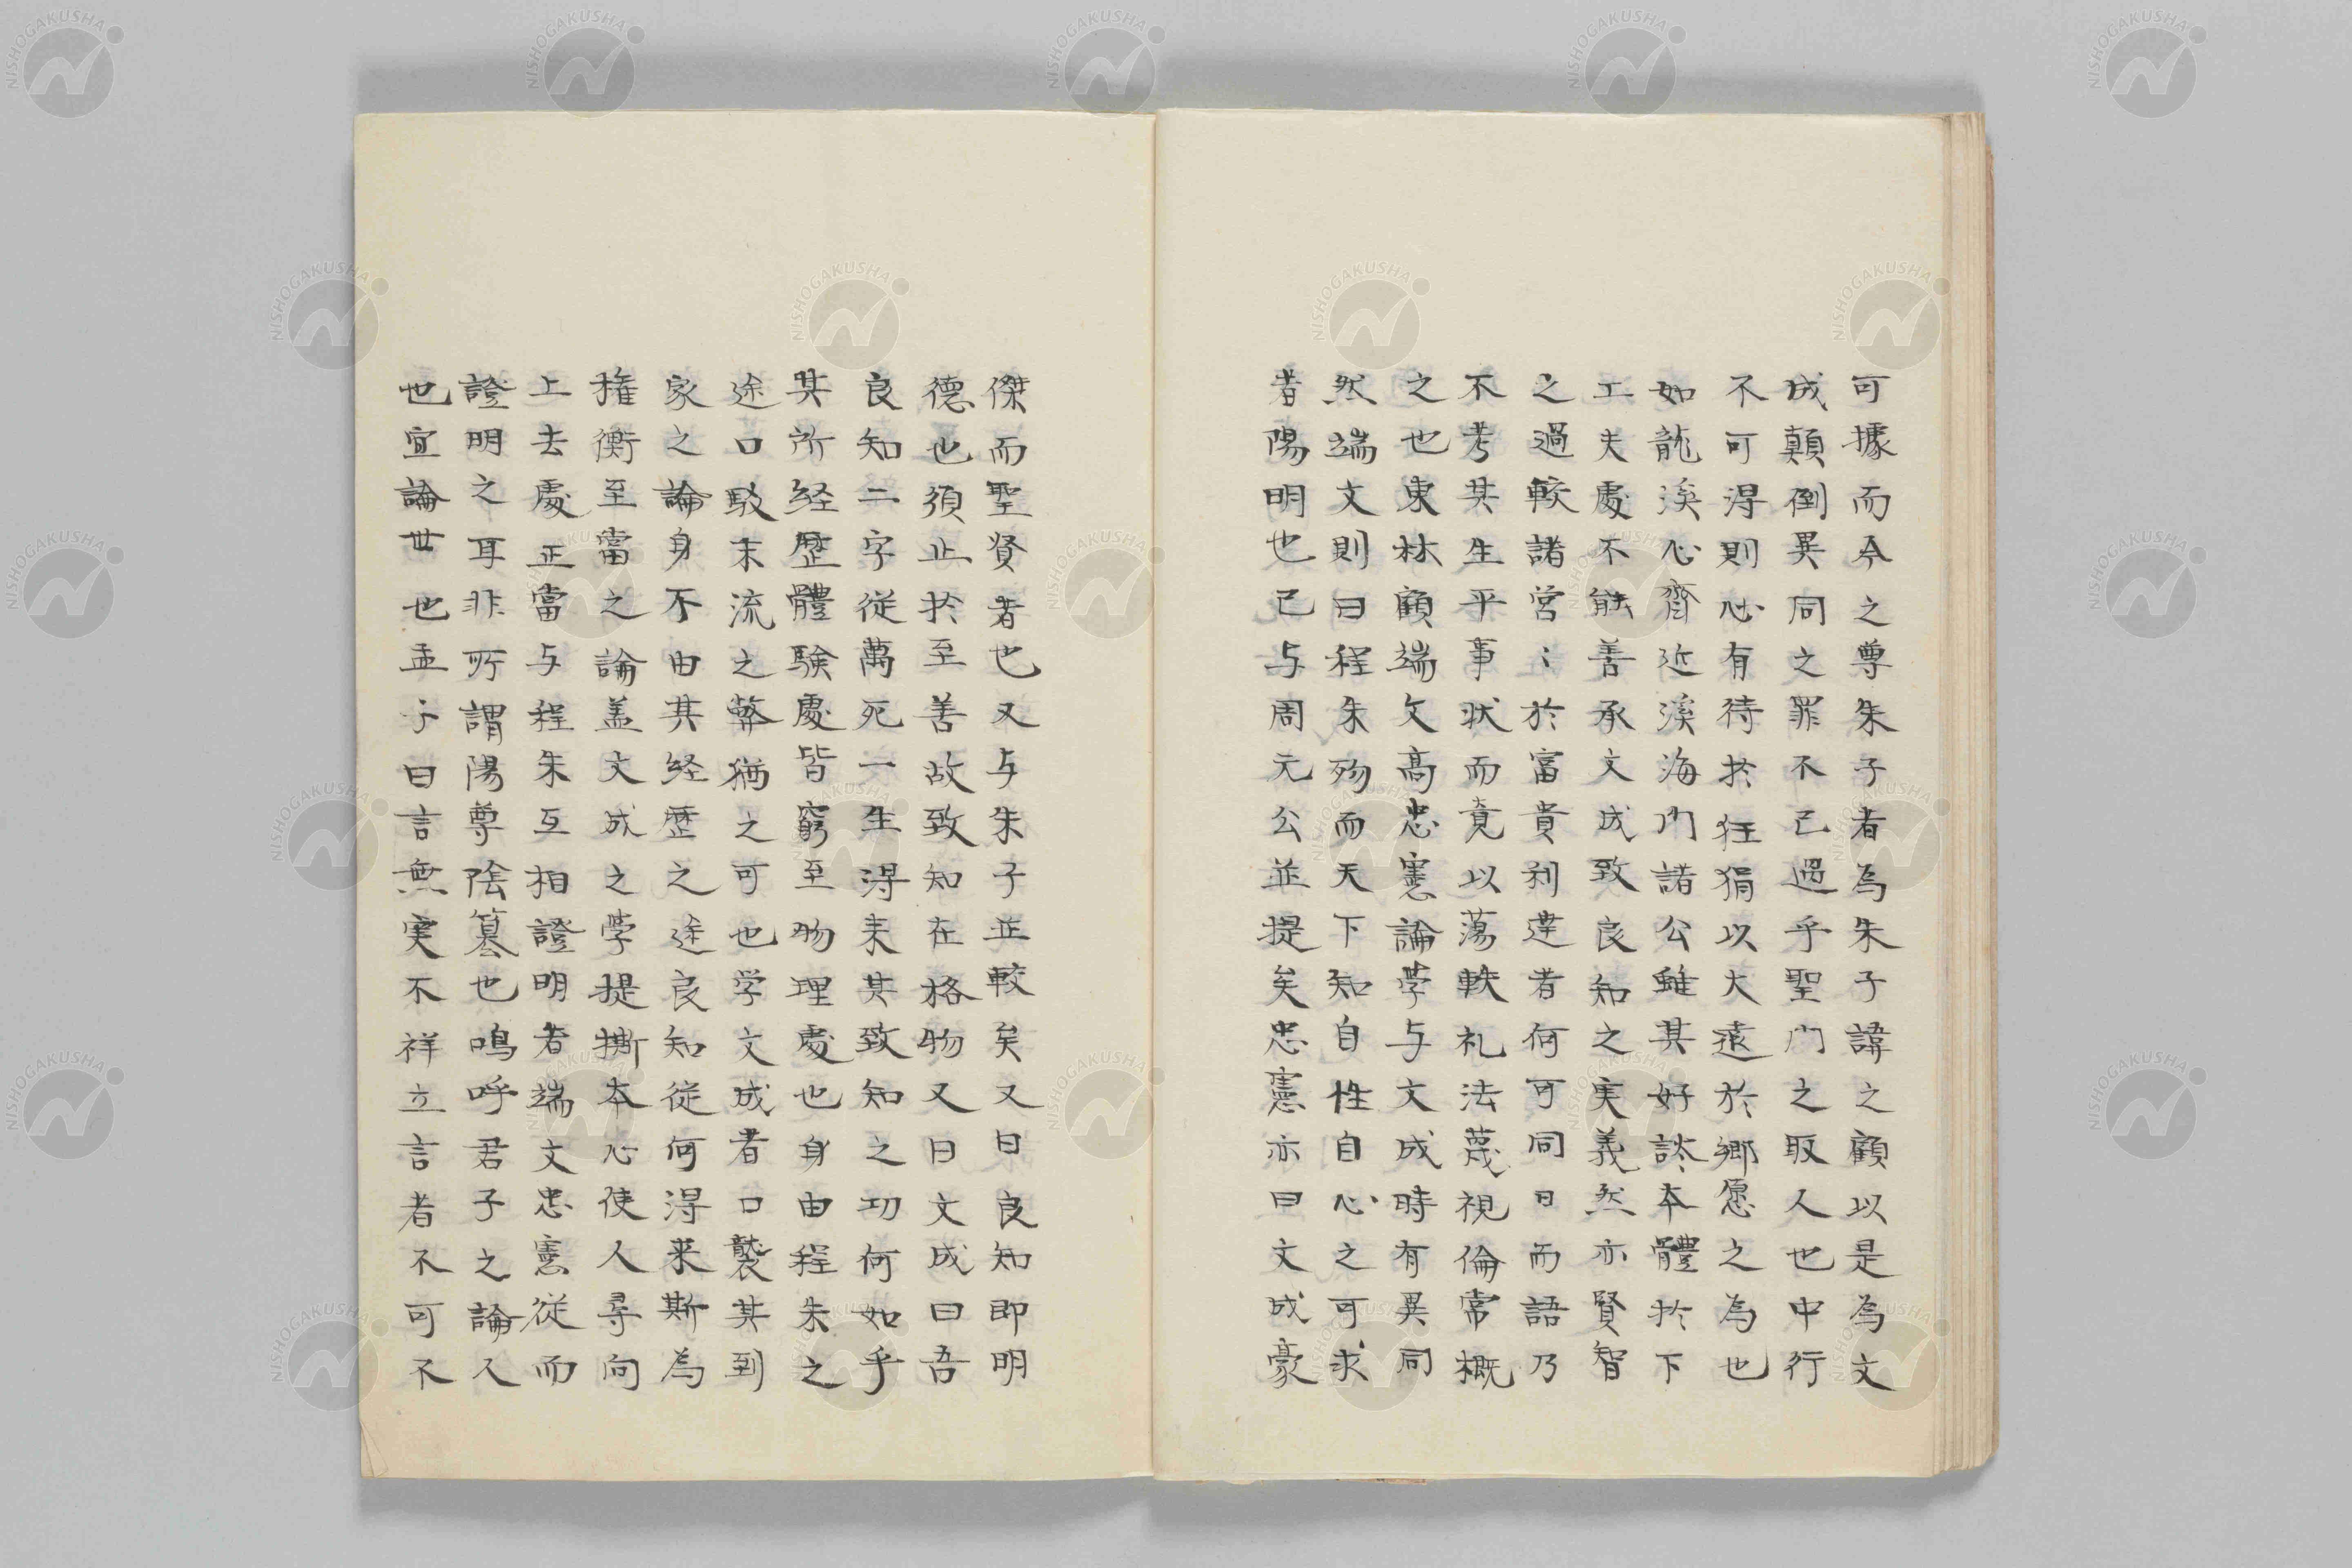 可據而今之尊朱子者為朱子諱之顧以是為文
成顛倒異同之罪不已過乎聖门之取人也中行
不可得則心有待於狂狷以大遠於鄉愿之為也
如龍溪心齋近溪海门諸公雖其好談本體於下
工夫處不能善承文成致良知之実義然亦賢智
之過較諸営〻於富貴利達者何可同日而語乃
不考其生平事状而竟以蕩軼礼法蔑視倫常概
之也東林顧端文高忠憲論学与文成時有異同
然端文則曰程朱殁而天下知自性自心之可求
者陽明也已与周元公並提矣忠憲亦曰文成豪
傑而聖贤者也又与朱子並較矣又曰良知即明
德也須止於至善故致知在格物又曰文成曰吾
良知二字従萬死一生得来其致知之功何如乎
其所経歷體験處皆窮至物理處也身由程朱之
途口駁末流之弊猶之可也学文成者口襲其到
家之論身不由其経歷之途良知従何得来斯為
権衡至當之論盖文成之学提撕本心使人尋向
上去處正當与程朱互相證明者端文忠憲従而
證明之耳非所謂陽尊陰篡也鳴呼君子之論人
也宜論世也孟子曰言無実不祥立言者不可不